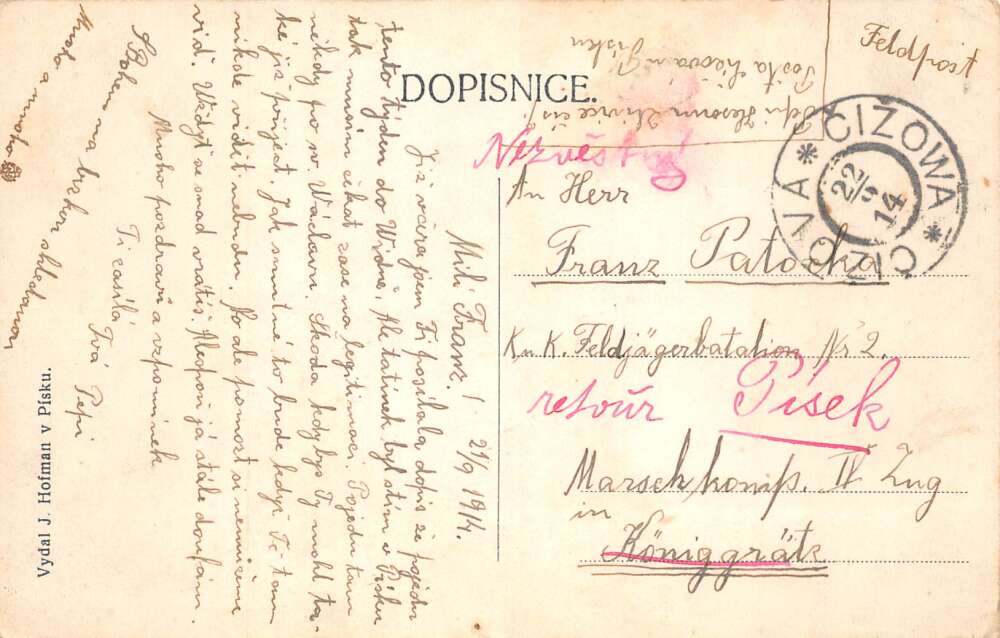 DOPISNICE.
Feldpost
Pošta Čížová u Písku
ČIZOWA * ČIZOVA *
22/9 14
Nezvěstný
An Herr
Franz Patočka
K u K. Feldjägerbatalion Nr 2.
retour Písek
Marschkomp. IV Zug
in
Königgrätz
Milý Franz! 21/9 1914.
Již včera jsem Ti posílala dopis že pojedu
tento týden do Vídně. Ale tatínek byl s tím v Písku
tak musím čekat zase na legitimaci. Pojedu tam
někdy po sv Václavu. Škoda kdybys Ty mohl ta-
ké již přijet. Jak smutné to bude když Tě tam
nikde vidět nebudu. No ale pomoct si nemůžeme
viď. Vždyť se snad vrátíš. Alespoň já stále doufám.
Mnoho pozdravů a vzpomínek
Ti zasílá Tvá Pepi
S Bohem na brzkou shledanou
Mnoho a mnoho
Vydal J. Hofman v Písku.